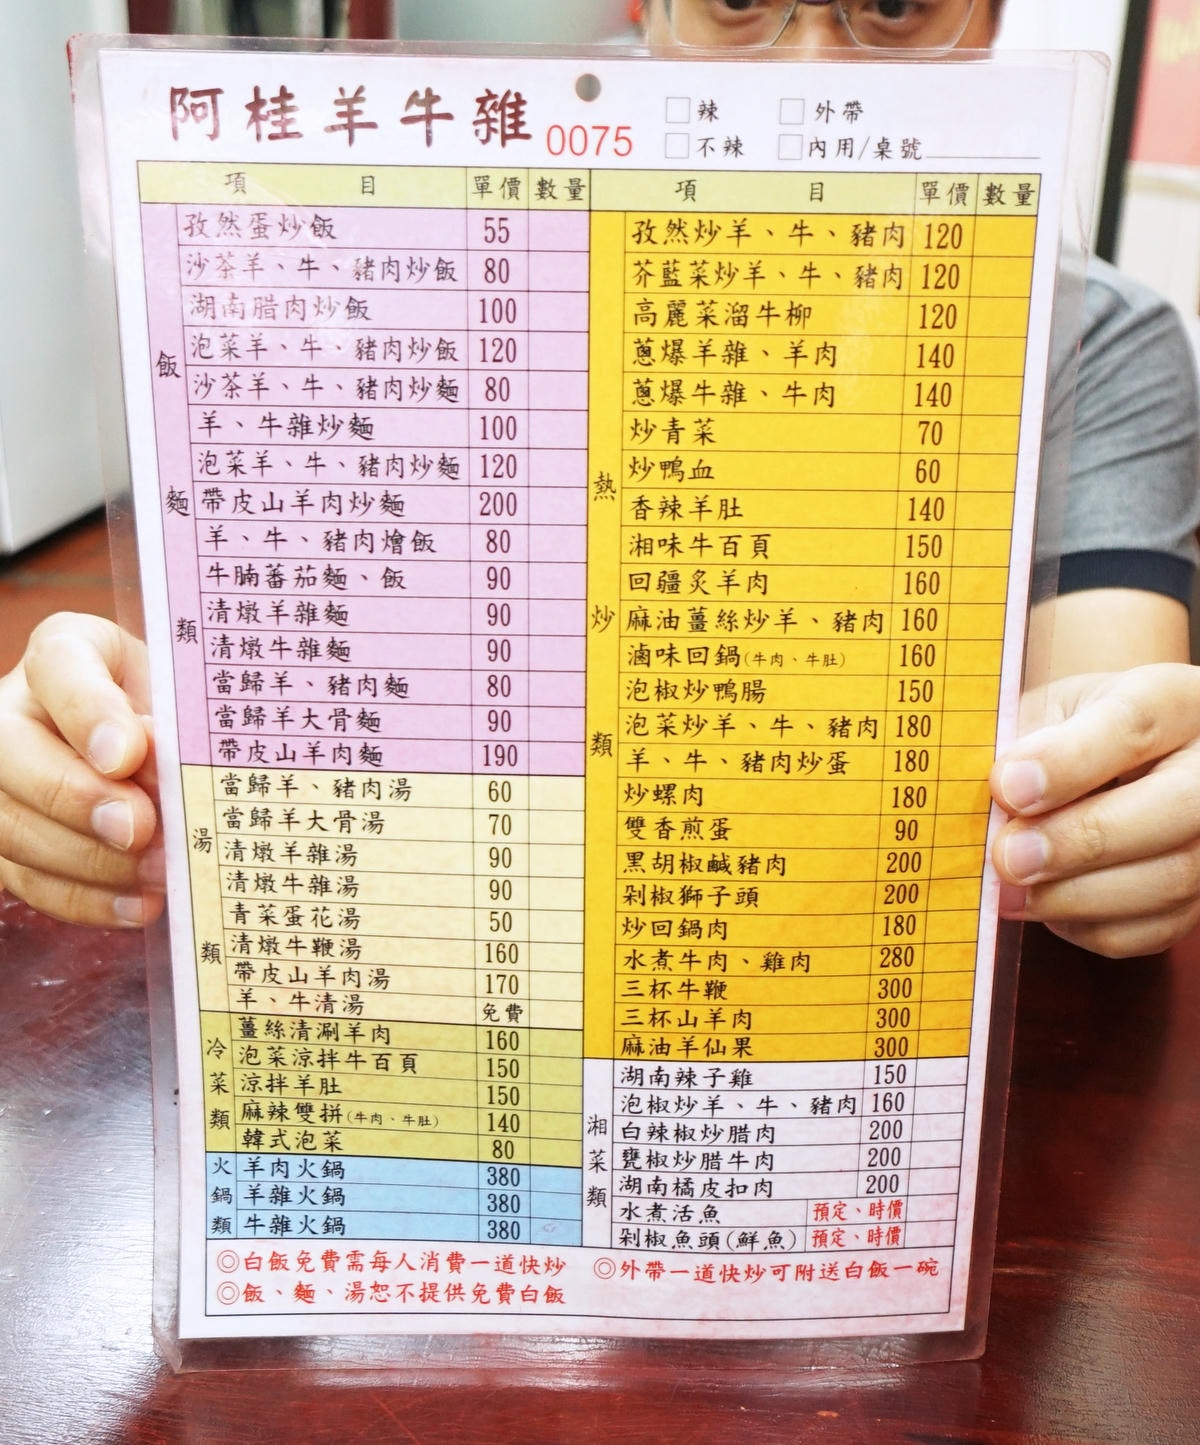 阿桂羊牛雜 0075
□辣 □外帶
□不辣 □內用/桌號
項目 單價 數量
飯麵類
孜然蛋炒飯 55
沙茶羊、牛、豬肉炒飯 80
湖南腊肉炒飯 100
泡菜羊、牛、豬肉炒飯 120
沙茶羊、牛、豬肉炒麵 80
羊、牛雜炒麵 100
泡菜羊、牛、豬肉炒麵 120
帶皮山羊肉炒麵 200
羊、牛、豬肉燴飯 80
牛腩蕃茄麵、飯 90
清燉羊雜麵 90
清燉牛雜麵 90
當歸羊、豬肉麵 80
當歸羊大骨麵 90
帶皮山羊肉麵 190
湯類
當歸羊、豬肉湯 60
當歸羊大骨湯 70
清燉羊雜湯 90
清燉牛雜湯 90
青菜蛋花湯 50
清燉牛鞭湯 160
帶皮山羊肉湯 170
羊、牛清湯 免費
冷菜類
薑絲清涮羊肉 160
泡菜涼拌牛百頁 150
涼拌羊肚 150
麻辣雙拼(牛肉、牛肚) 140
韓式泡菜 80
火鍋類
羊肉火鍋 380
羊雜火鍋 380
牛雜火鍋 380
項目 單價 數量
熱炒類
孜然炒羊、牛、豬肉 120
芥藍菜炒羊、牛、豬肉 120
高麗菜溜牛柳 120
蔥爆羊雜、羊肉 140
蔥爆牛雜、牛肉 140
炒青菜 70
炒鴨血 60
香辣羊肚 140
湘味牛百頁 150
回疆炙羊肉 160
麻油薑絲炒羊、豬肉 160
滷味回鍋(牛肉、牛肚) 160
泡椒炒鴨腸 150
泡菜炒羊、牛、豬肉 180
羊、牛、豬肉炒蛋 180
炒螺肉 180
雙香煎蛋 90
黑胡椒鹹豬肉 200
剁椒獅子頭 200
炒回鍋肉 180
水煮牛肉、雞肉 280
三杯牛鞭 300
三杯山羊肉 300
麻油羊仙果 300
湘菜類
湖南辣子雞 150
泡椒炒羊、牛、豬肉 160
白辣椒炒腊肉 200
甕椒炒腊牛肉 200
湖南橘皮扣肉 200
水煮活魚 預定、時價
剁椒魚頭(鮮魚) 預定、時價
◎白飯免費需每人消費一道快炒 ◎外帶一道快炒可附送白飯一碗
◎飯、麵、湯恕不提供免費白飯